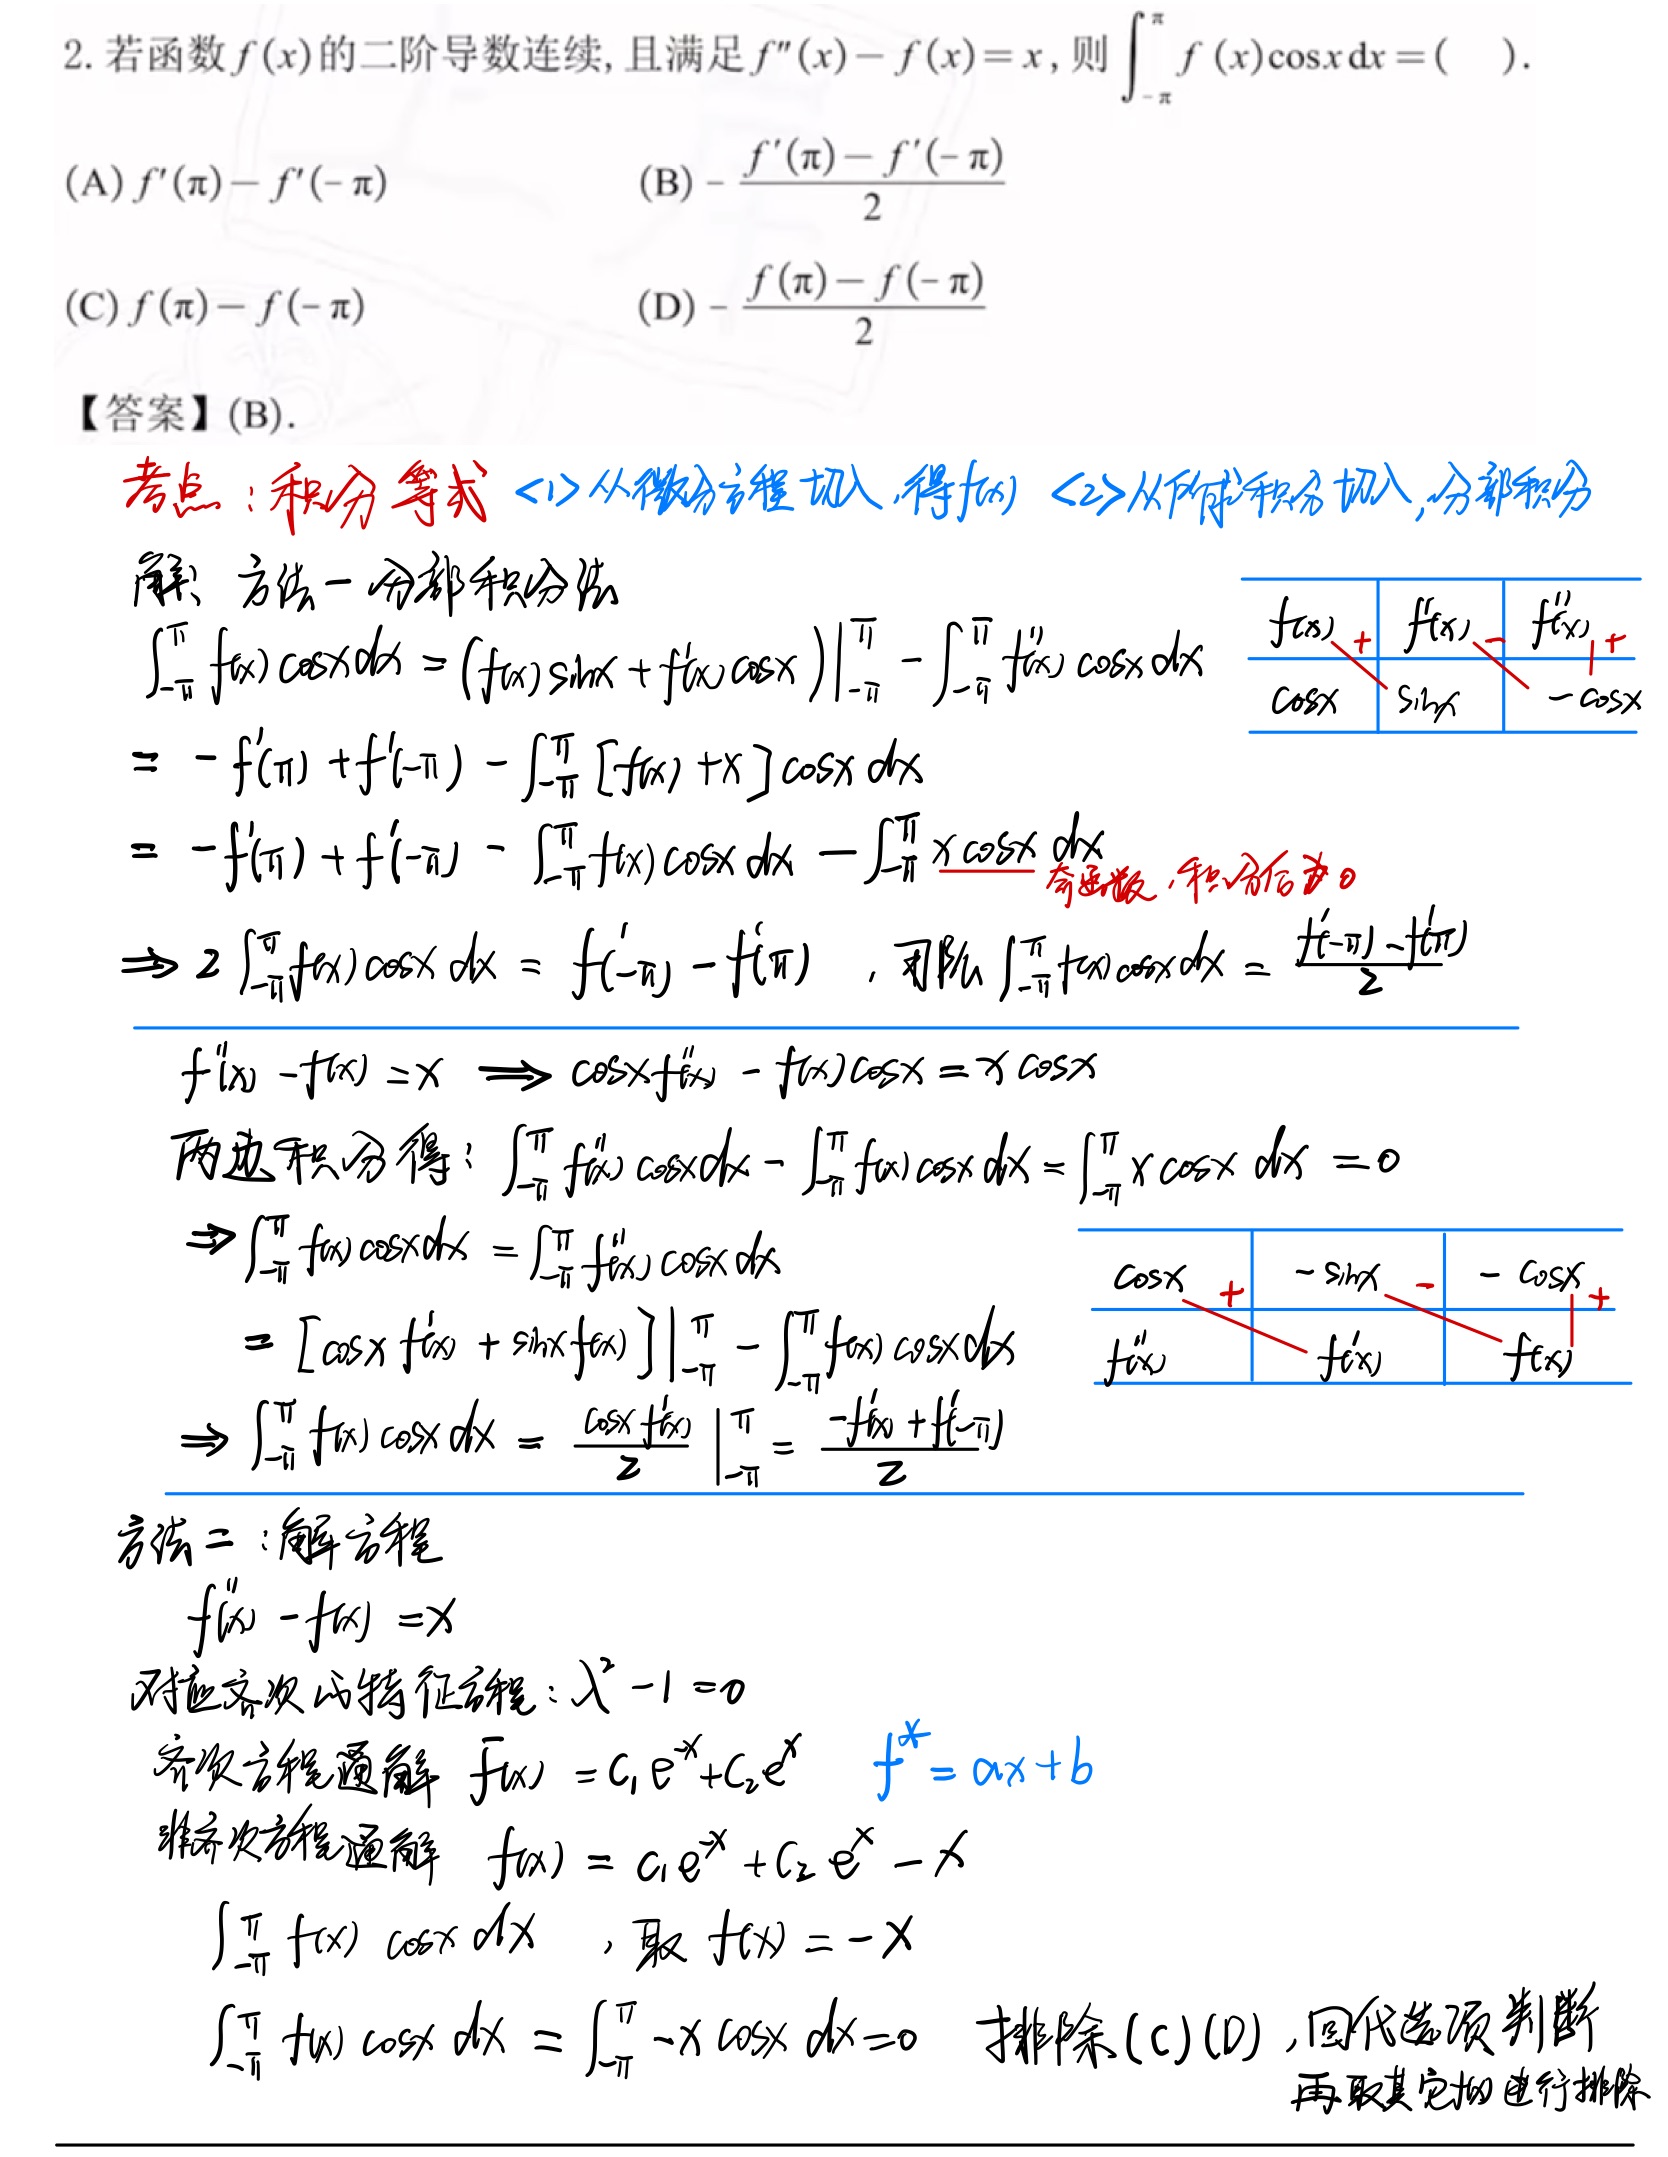 2. 若函数 f(x)的二阶导数连续, 且满足 f″(x) − f(x) = x, 则 ∫_{-π}^{π} f(x)cosxdx = (   ).
(A) f′(π) − f′(−π)   (B) − (f′(π) − f′(−π))/2
(C) f(π) − f(−π)   (D) − (f(π) − f(−π))/2
【答案】(B).
考点：积分等式 <1>从微分方程切入,得f(x) <2>从所求积分切入,分部积分
解、方法一 分部积分法
f(x) + f′(x) − f″(x) +
cosx sinx −cosx
∫_{-π}^{π} f(x)cosxdx = (f(x)sinx + f′(x)cosx)|_{-π}^{π} − ∫_{-π}^{π} f″(x)cosxdx
= −f′(π) + f′(−π) − ∫_{-π}^{π} [f(x) + x]cosxdx
= −f′(π) + f′(−π) − ∫_{-π}^{π} f(x)cosxdx − ∫_{-π}^{π} xcosxdx
奇函数,积分后为0
⇒ 2∫_{-π}^{π} f(x)cosxdx = f′(−π) − f′(π) , 可以 ∫_{-π}^{π} f(x)cosxdx = (f′(−π) − f′(π))/2
f″(x) − f(x) = x ⇒ cosxf″(x) − f(x)cosx = xcosx
两边积分得: ∫_{-π}^{π} f″(x)cosxdx − ∫_{-π}^{π} f(x)cosxdx = ∫_{-π}^{π} xcosxdx = 0
⇒ ∫_{-π}^{π} f(x)cosxdx = ∫_{-π}^{π} f″(x)cosxdx
cosx + −sinx − −cosx +
f″(x) f′(x) f(x)
= [cosxf′(x) + sinxf(x)]|_{-π}^{π} − ∫_{-π}^{π} f(x)cosxdx
⇒ ∫_{-π}^{π} f(x)cosxdx = (cosxf′(x))/2 |_{-π}^{π} = (−f′(x) + f′(−π))/2
方法二：解方程
f″(x) − f(x) = x
对应齐次的特征方程: λ² − 1 = 0
齐次方程通解 f̄(x) = C₁e^{−x} + C₂e^{x}   f* = ax + b
非齐次方程通解 f(x) = C₁e^{−x} + C₂e^{x} − x
∫_{-π}^{π} f(x)cosxdx , 取 f(x) = −x
∫_{-π}^{π} f(x)cosxdx = ∫_{-π}^{π} −xcosxdx = 0 排除(C)(D),回代选项判断
再取其它 进行排除